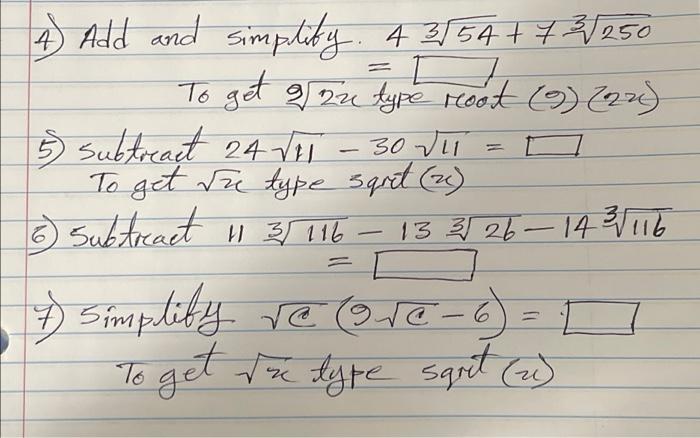 4) Add and simplify. 4 ∛54 + 7 ∛250
= □
To get ⁹√2x type root (9) (2x)
5) Subtract 24 √11 - 30 √11 = □
To get √x type sqrt (x)
6) Subtract 11 ∛116 - 13 ∛26 - 14 ∛116
= □
7) Simplify √c (9√c - 6) = □
To get √x type sqrt (x)